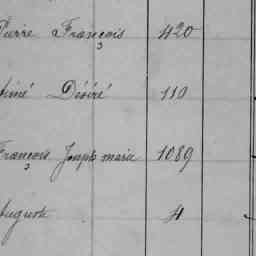 Pierre François 420
Aimé Désiré 110
François Joseph marie 1089
Auguste 4